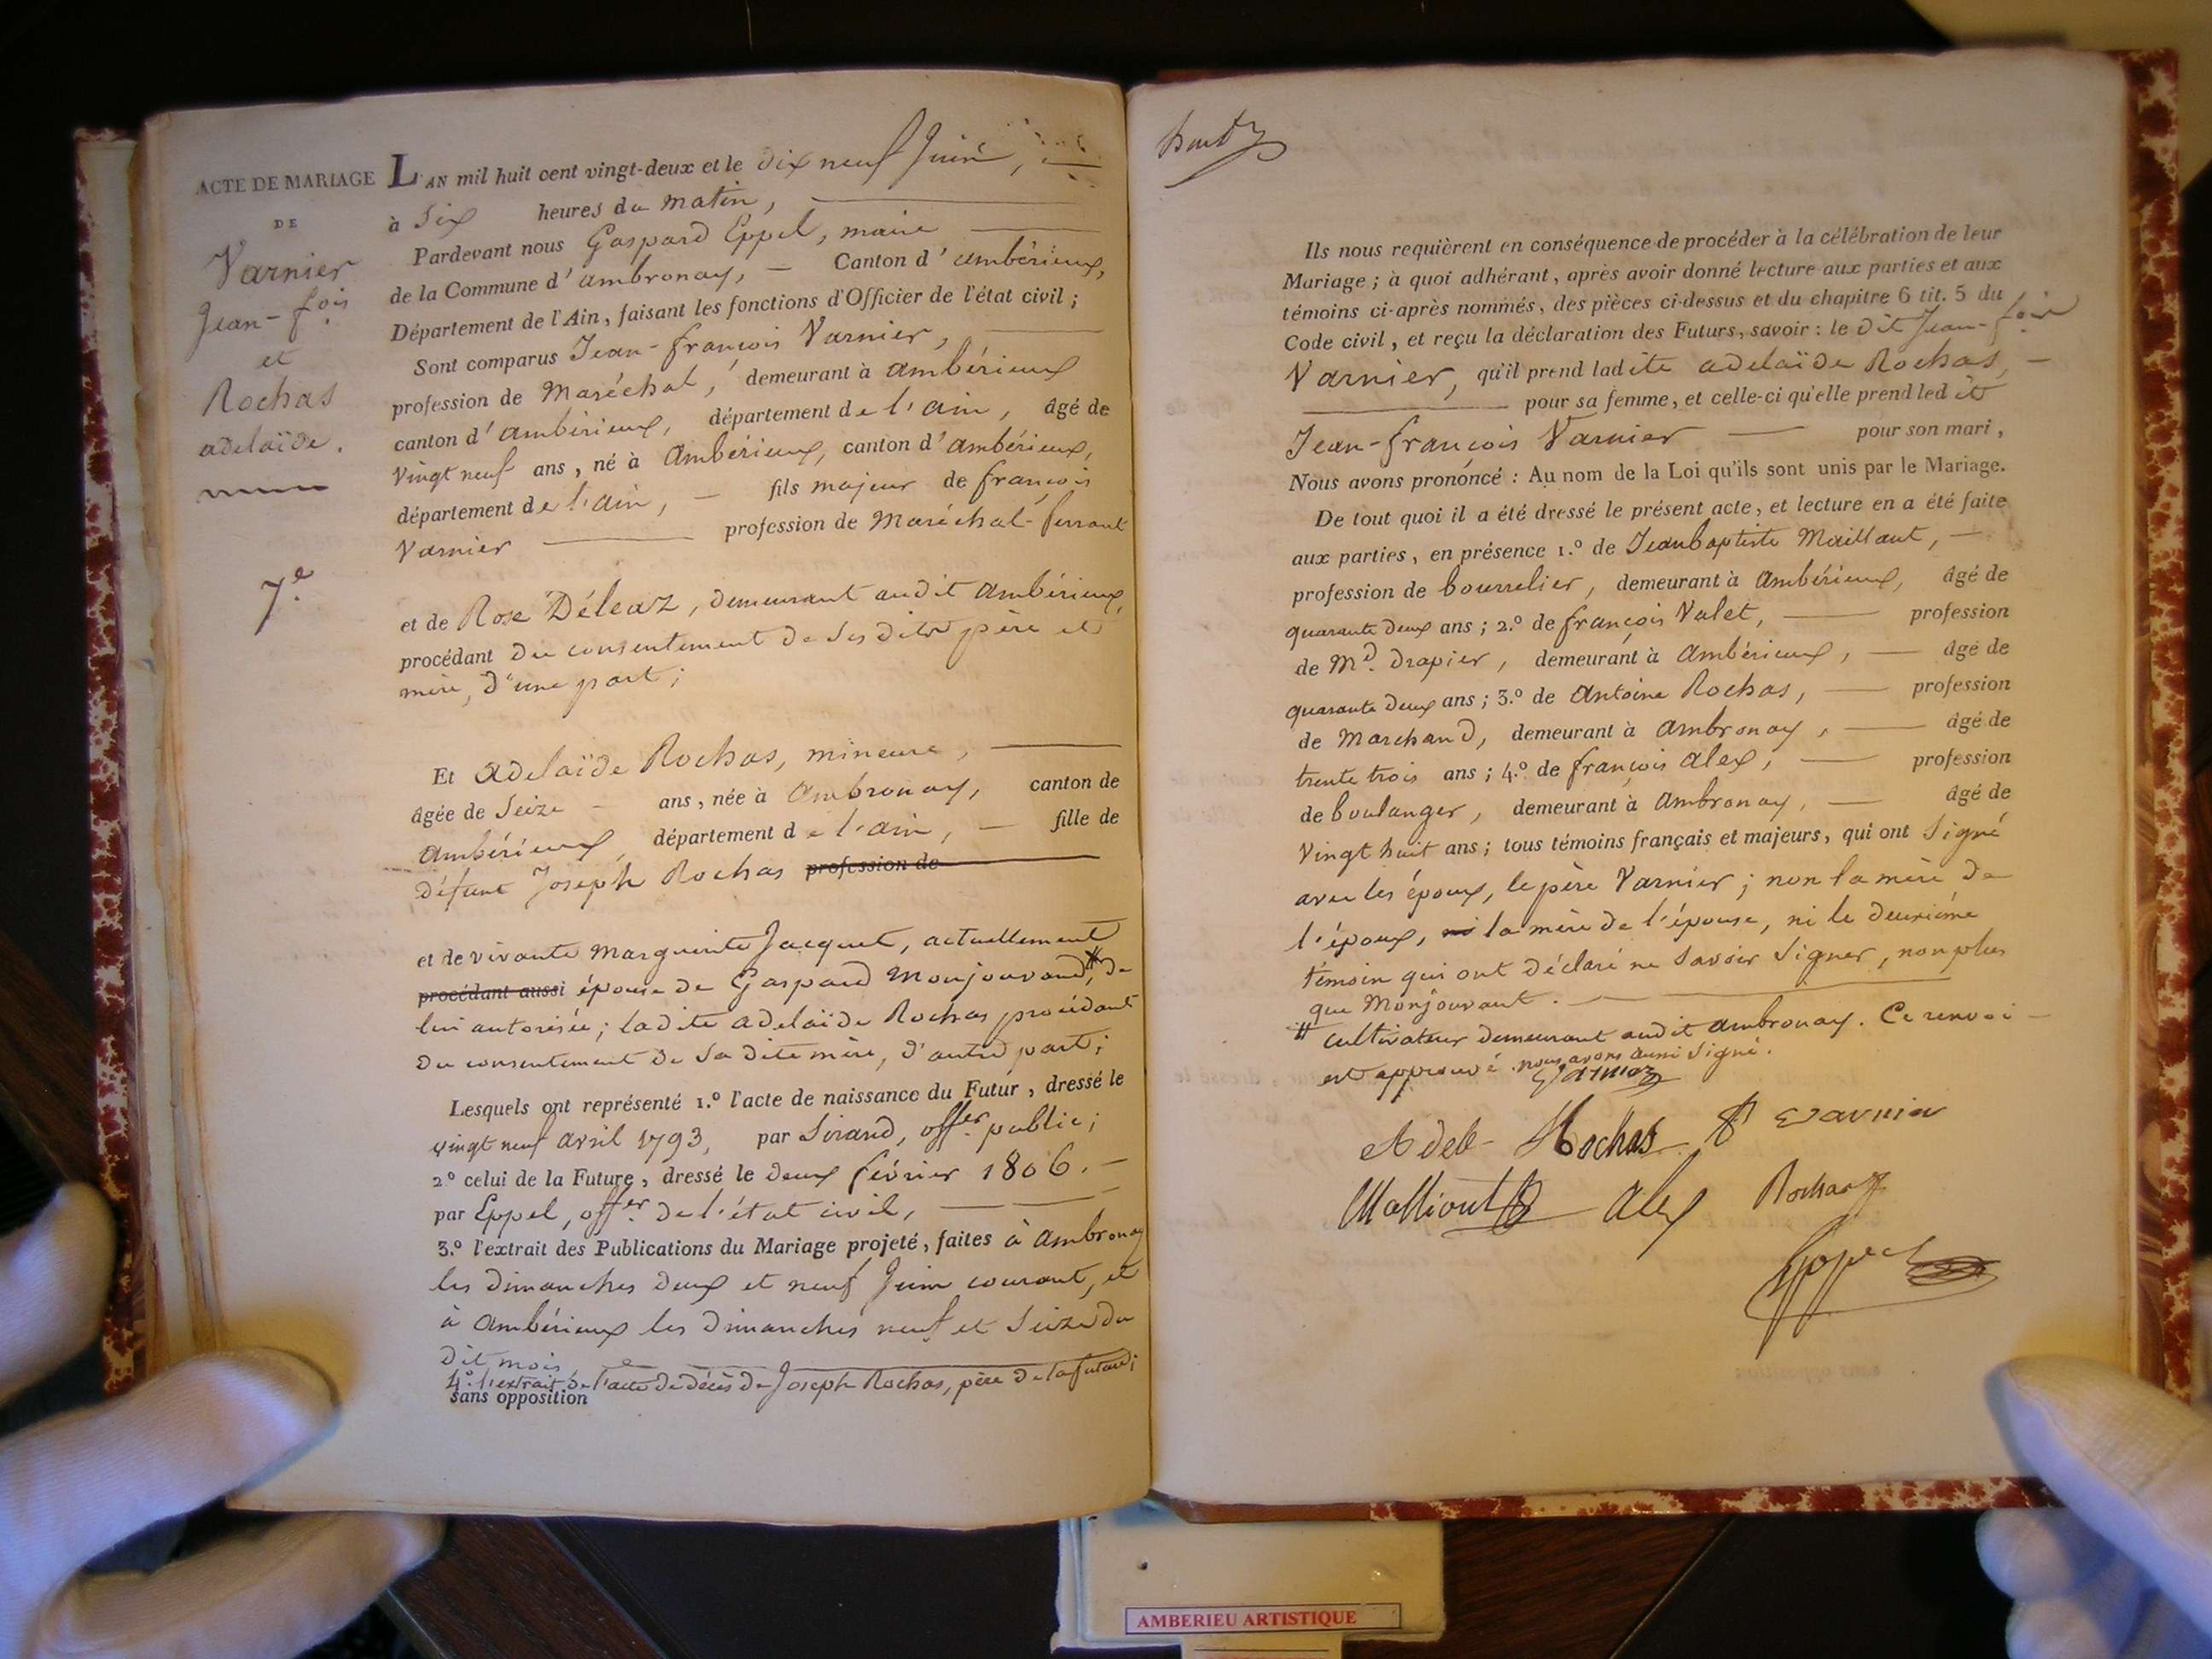 ACTE DE MARIAGE
DE
Varnier
Jean-fois
et
Rochas
adelaïde.
7e.
L'AN mil huit cent vingt-deux et le dix neuf Juin,
à Six heures du matin,
Pardevant nous Gaspard Eppel, maire
de la Commune d'ambronay, Canton d'ambérieux,
Département de l'Ain, faisant les fonctions d'Officier de l'état civil;
Sont comparus Jean-françois Varnier,
profession de Maréchal, demeurant à ambérieux
canton d'ambérieux, département de l'ain, âgé de
Vingt neuf ans, né à ambérieux, canton d'ambérieux,
département de l'ain, fils majeur de françois
Varnier profession de Maréchal-ferrant
et de Rose Déleaz, demeurant audit ambérieux,
procédant du consentement de ses dits père et
mère, d'une part;
Et adelaïde Rochas, mineure,
âgée de Seize ans, née à ambronay, canton de
ambérieux, département de l'ain, fille de
défunt Joseph Rochas profession de
et de vivante Marguerite Jacquet, actuellement
procédant aussi épouse de Gaspard Monjouvand,# de
lui autorisée; ladite adelaïde Rochas procédant
du consentement de sa dite mère, d'autre part;
Lesquels ont représenté 1.º l'acte de naissance du Futur, dressé le
vingt neuf avril 1793, par Sirand, offer. public;
2º celui de la Future, dressé le deux février 1806.
par Eppel, offer. de l'état civil,
3.º l'extrait des Publications du Mariage projeté, faites à ambronay
les dimanches deux et neuf Juin courant, et
à ambérieux les dimanches neuf et Seize du
dit mois,
4º. l'extrait de l'acte de décès de Joseph Rochas, père de la future;
sans opposition
Ils nous requièrent en conséquence de procéder à la célébration de leur
Mariage; à quoi adhérant, après avoir donné lecture aux parties et aux
témoins ci-après nommés, des pièces ci-dessus et du chapitre 6 tit. 5 du
Code civil, et reçu la déclaration des Futurs, savoir: le dit Jean-fois
Varnier, qu'il prend ladite adelaïde Rochas,
pour sa femme, et celle-ci qu'elle prend ledit
Jean-françois Varnier pour son mari,
Nous avons prononcé: Au nom de la Loi qu'ils sont unis par le Mariage.
De tout quoi il a été dressé le présent acte, et lecture en a été faite
aux parties, en présence 1.º de Jeanbaptiste Maillant,
profession de bourrelier, demeurant à ambérieux, âgé de
quarante deux ans; 2.º de françois Valet, profession
de Md. drapier, demeurant à ambérieux, âgé de
quarante deux ans; 3.º de antoine Rochas, profession
de Marchand, demeurant à ambronay, âgé de
trente trois ans; 4.º de françois alex, profession
de boulanger, demeurant à ambronay, âgé de
Vingt huit ans; tous témoins français et majeurs, qui ont signé
avec les époux, le père Varnier; non la mère de
l'époux, ni la mère de l'épouse, ni le deuxième
témoin qui ont déclaré ne savoir signer, non plus
que Monjouvant.
# cultivateur demeurant audit ambronay. Ce renvoi
est approuvé. nous avons aussi signé.
Varnier
Adele Rochas varnier
Alex Rochas
Eppel
AMBERIEU ARTISTIQUE